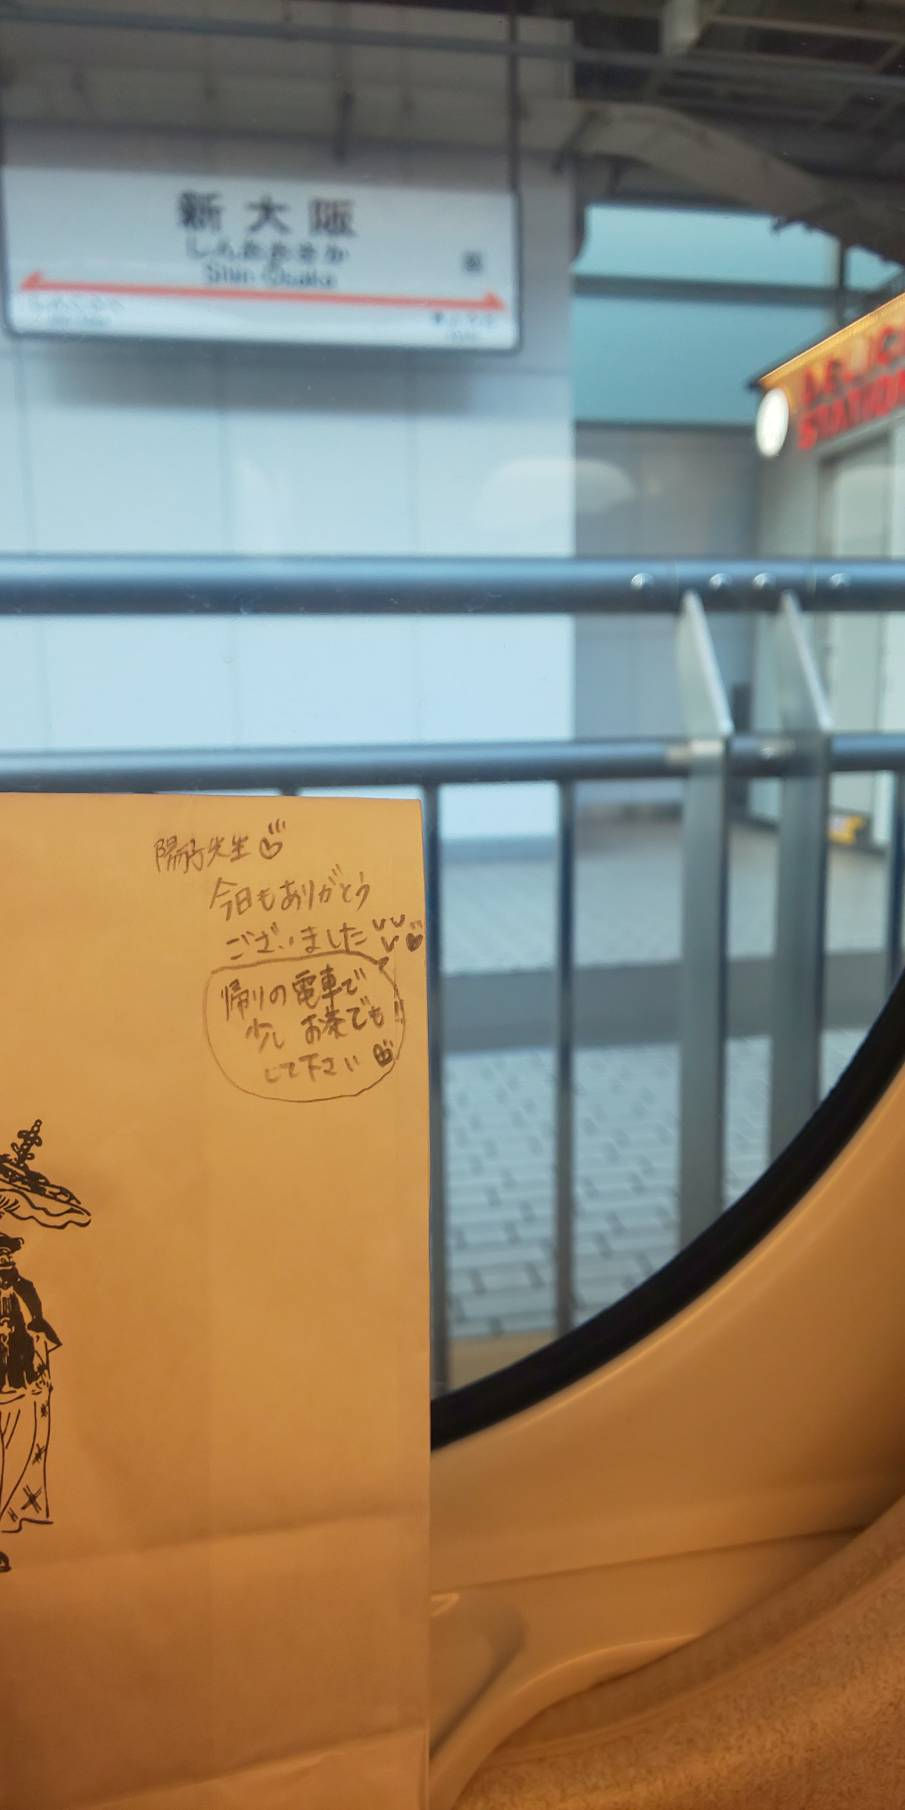 新大阪
しんおおさか
Shin-Osaka
STATION
先生
今日もありがとう
ございました
帰りの電車で
少し お茶でも!!
して下さい